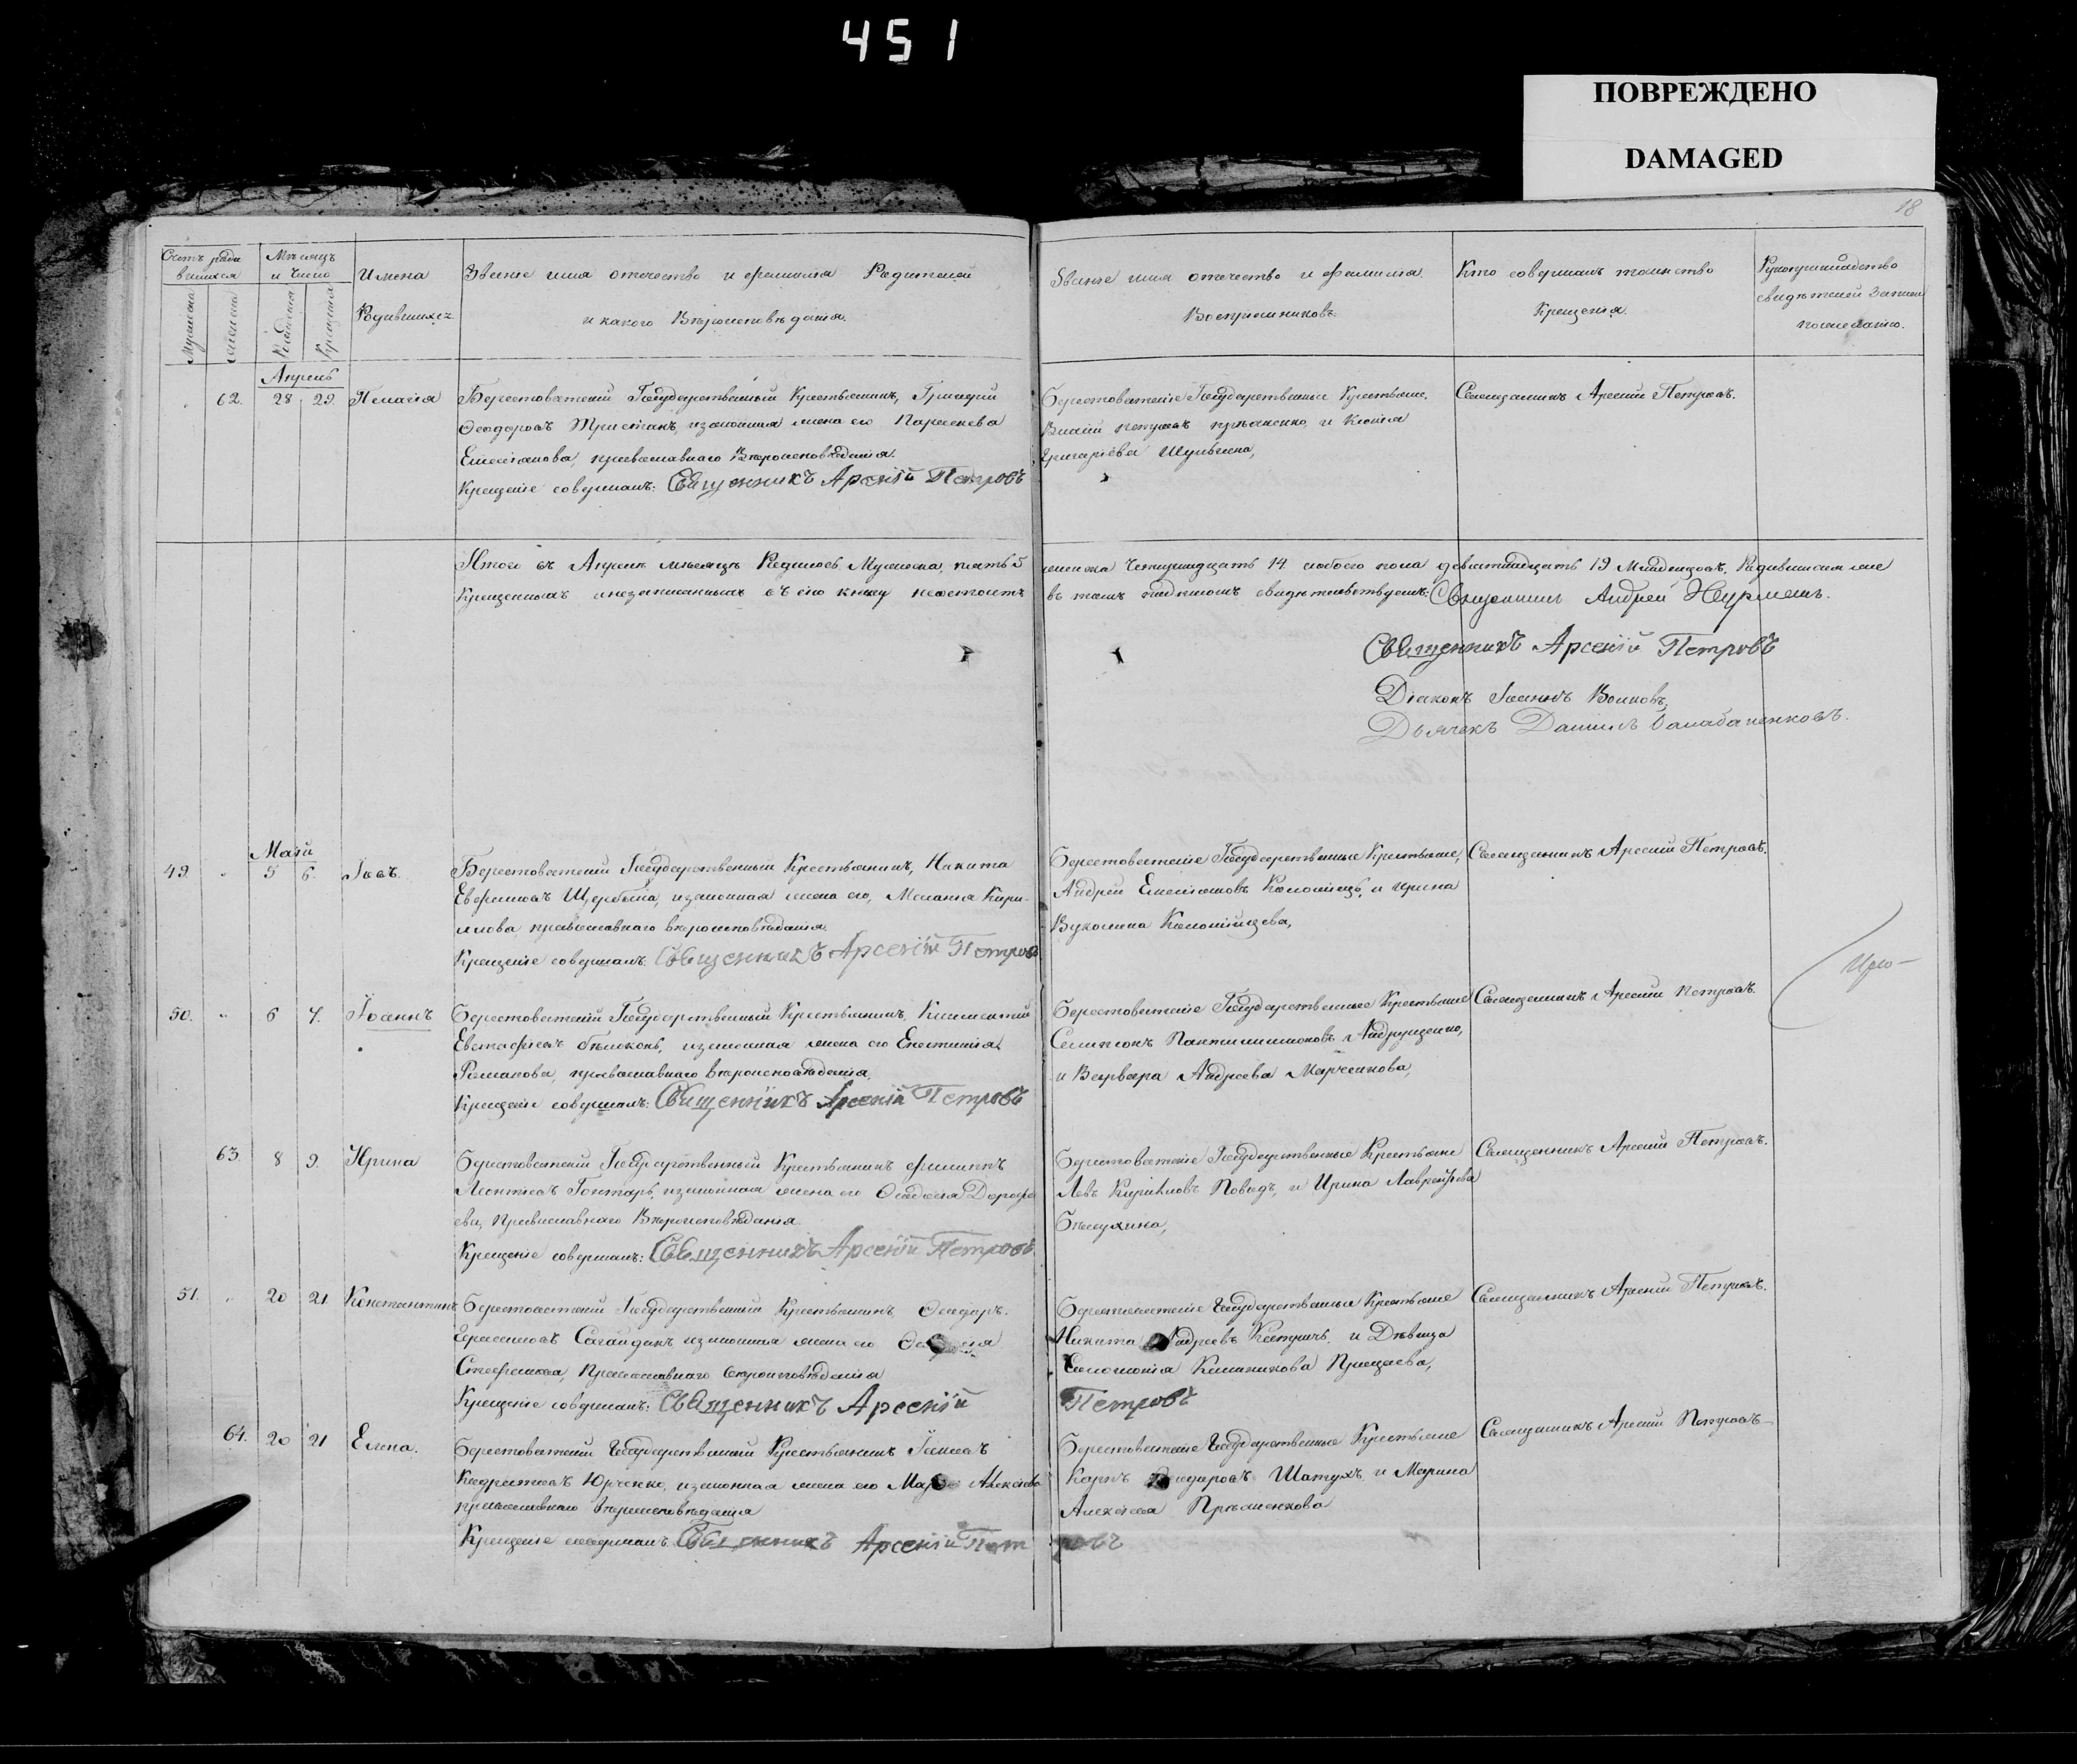 451
ПОВРЕЖДЕНО
DAMAGED
18
Счетъ роди
вшихся
Мѣсяцъ
и Число
Имена
Родившихся
Званіе имя отчество и фамилія Родителей
и какого Вѣроисповѣданія.
Званіе имя отчество и фамилія
Воспріемниковъ.
Кто совершалъ таинство
Крещенія.
Рукоприкладство
свидѣтелей записи
по желанію.
Мужеска
женска
Рожденія
Крещенія
Апрель
62. 28 29. Пелагія
Берестоватскій Государственный Крестьянинъ, Григорій
Феодоровъ Тристанъ, изаконная жена его Параскева
Емеліанова, православнаго Вѣроисповѣданія.
Крещеніе совершалъ: Священникъ Арсеній Петровъ
Берестоватскіе Государственные Крестьяне,
Петровъ и
Григоріева Шульгина,
Священникъ Арсеній Петровъ.
Итого въ Апрелѣ мѣсяцѣ Родилось Мужеска пять 5
женска Четырнадцать 14 обоего пола девятнадцать 19 Младенцовъ. Родившихся же
Крещенныхъ инезаписанныхъ въ сію книгу несостоитъ
въ томъ подписомъ свидѣтельствуемъ: Священникъ Андрей
Священникъ Арсеній Петровъ
Діаконъ Іоаннъ Волковъ.
Дьячекъ Даніилъ
Май
49. 5 6. Іовъ.
Берестоватскій Государственный Крестьянинъ, Никита
Евфимовъ Щербына, изаконная жена его, Меланія Кири-
лова православнаго вѣроисповѣданія.
Крещеніе совершалъ: Священникъ Арсеній Петровъ
Берестоватскіе Государственные Крестьяне,
Андрей Емеліановъ Коломіецъ, и Ирина
Вуколина Коломійцева,
Священникъ Арсеній Петровъ.
50. 6 7. Іоаннъ
Берестоватскій Государственный Крестьянинъ, Климентій
Евстафіевъ Бѣлоконь, изаконная жена его Евстимія
Романова, православнаго вѣроисповѣданія.
Крещеніе совершалъ: Священникъ Арсеній Петровъ
Берестоватскіе Государственные Крестьяне
Симеонъ Пантилимоновъ Андрущенко,
и Варвара Андреева Марченкова,
Священникъ Арсеній Петровъ.
63. 8 9. Ирина
Берестоватскій Государственный Крестьянинъ Филиппъ
Леонтіевъ Гонтарь, изаконная жена его Феодосія Дорофе
ева, православнаго Вѣроисповѣданія.
Крещеніе совершалъ: Священникъ Арсеній Петровъ
Берестоватскіе Государственные Крестьяне
Левъ Кириловъ Повидъ, и Ирина Лаврентіева
Священникъ Арсеній Петровъ.
51. 20 21 Константинъ
Берестоватскій Государственный Крестьянинъ, Феодоръ
Герасимовъ Сагайдакъ изаконная жена его
Стефанова, Православнаго вѣроисповѣданія
Крещеніе совершалъ: Священникъ Арсеній
Петровъ
Берестоватскіе Государственные Крестьяне
Никита Андреевъ и Дѣвица
Соломонія
Священникъ Арсеній Петровъ.
64. 20 21 Елена.
Берестоватскій Государственный Крестьянинъ Іаковъ
Кодратовъ Юрченко, изаконная жена его Алексіева
православнаго вѣроисповѣданія
Крещеніе совершалъ: Священникъ Арсеній Пет
ровъ
Берестоватскіе Государственные Крестьяне
Карпъ Феодоровъ Шатухъ и Марина
Алексіева
Священникъ Арсеній Петровъ